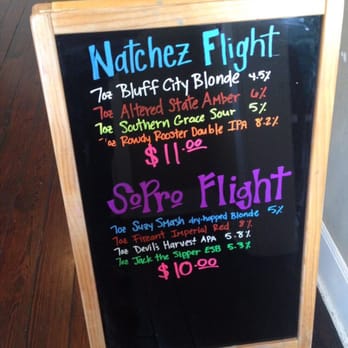 Natchez Flight
7oz Bluff City Blonde 4.5%
7oz Altered State Amber 6%
7oz Southern Grace Sour 5%
7oz Rowdy Rooster Double IPA 8.2%
$11.00
SoPro Flight
7oz Suzy Smash dry-hopped Blonde 5%
7oz Fiscant Imperial Red 8%
7oz Devil's Harvest APA 5.8%
7oz Jack the Sipper ESB 5.3%
$10.00